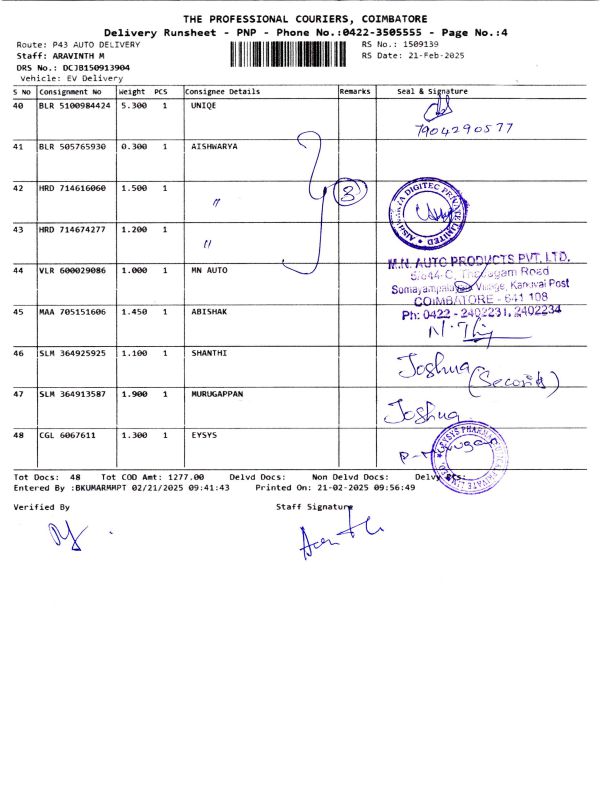 THE PROFESSIONAL COURIERS, COIMBATORE
Delivery Runsheet - PNP - Phone No.:0422-3505555 - Page No.:4
Route: P43 AUTO DELIVERY RS No.: 1509139
Staff: ARAVINTH M RS Date: 21-Feb-2025
DRS No.: DCJB150913904
Vehicle: EV Delivery
S No Consignment No Weight PCS Consignee Details Remarks Seal & Signature
40 BLR 5100984424 5.300 1 UNIQE
7904290577
41 BLR 505765930 0.300 1 AISHWARYA
42 HRD 714616060 1.500 1 " 3
AISHWARYA DIGITEC PRIVATE LIMITED
43 HRD 714674277 1.200 1 "
44 VLR 600029086 1.000 1 MN AUTO
M.N. AUTO PRODUCTS PVT. LTD.
Road
Village, Kanuvai Post
COIMBATORE - 641 108
Ph: 0422 - 2402231, 2402234
45 MAA 705151606 1.450 1 ABISHAK
46 SLM 364925925 1.100 1 SHANTHI
Joshua (Second)
47 SLM 364913587 1.900 1 MURUGAPPAN
Joshua
48 CGL 6067611 1.300 1 EYSYS
EYSYS PHARMACEUTICAL PRIVATE LIMITED
Tot Docs: 48 Tot COD Amt: 1277.00 Delvd Docs: Non Delvd Docs: Delvy
Entered By :BKUMARMMPT 02/21/2025 09:41:43 Printed On: 21-02-2025 09:56:49
Verified By Staff Signature